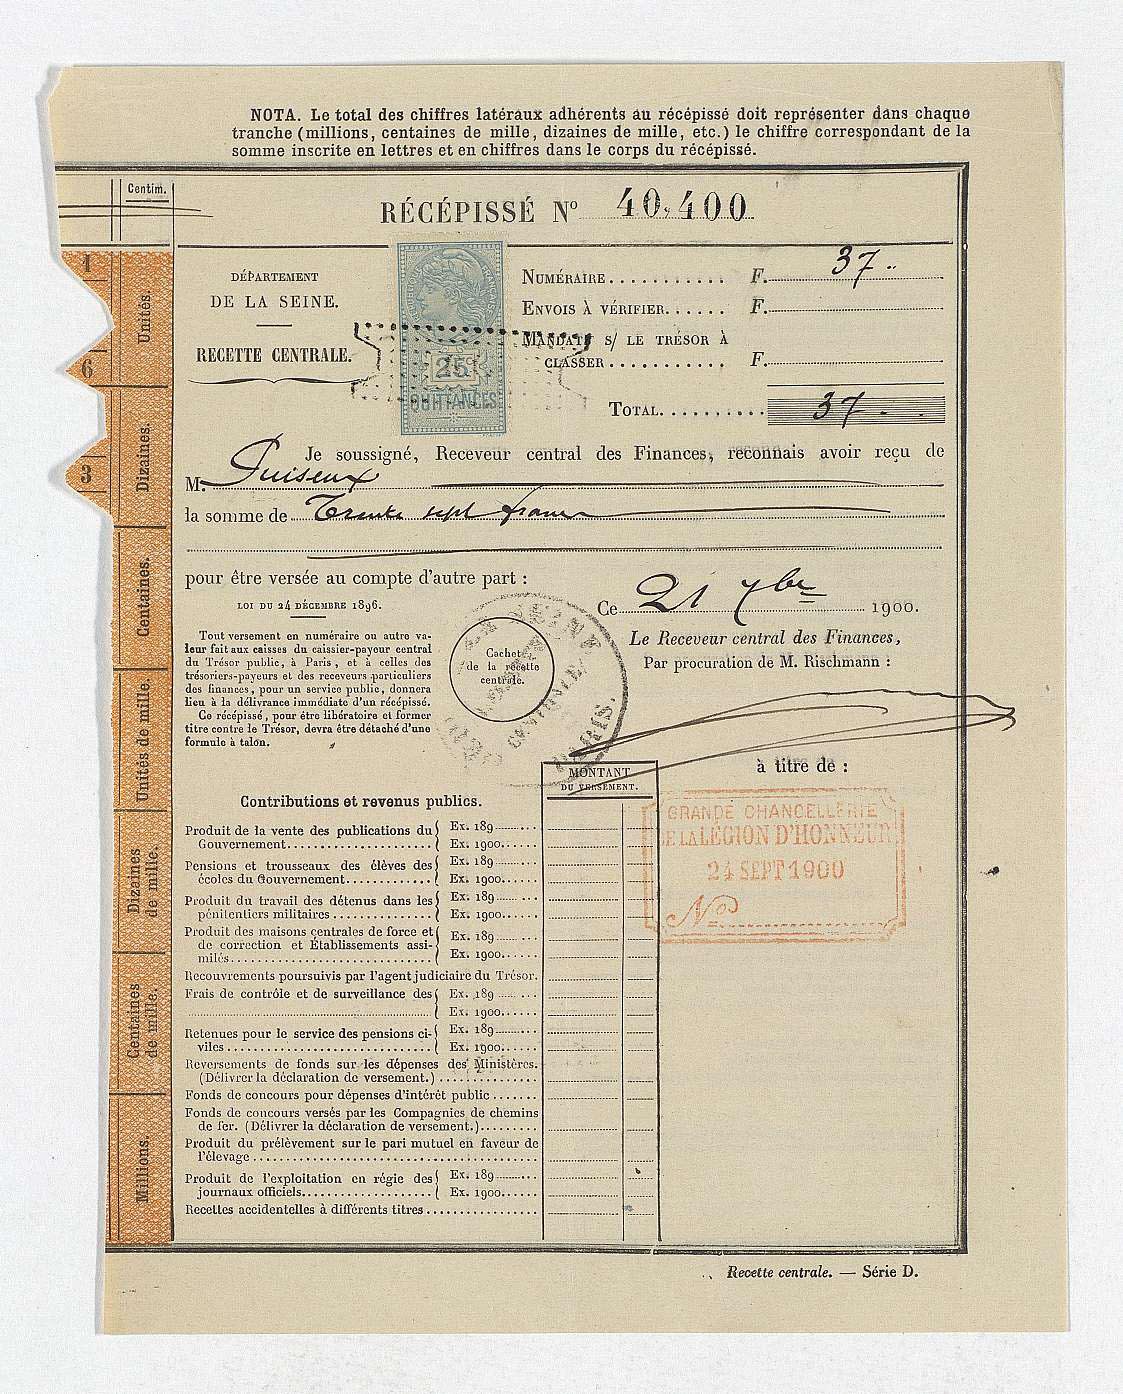 NOTA. Le total des chiffres latéraux adhérents au récépissé doit représenter dans chaque
tranche (millions, centaines de mille, dizaines de mille, etc.) le chiffre correspondant de la
somme inscrite en lettres et en chiffres dans le corps du récépissé.
Centim.
RÉCÉPISSÉ Nº 40,400
1
6
3
Unités.
Dizaines.
Centaines.
Unités de mille.
Dizaines
de mille.
Centaines
de mille.
Millions.
DÉPARTEMENT
DE LA SEINE.
RECETTE CENTRALE.
25c
QUITTANCES
NUMÉRAIRE........... F. 37 "
ENVOIS À VÉRIFIER...... F.
MANDATS s/ LE TRÉSOR À
CLASSER........... F.
TOTAL.......... 37
Je soussigné, Receveur central des Finances, reconnais avoir reçu de
M. Puiseux
la somme de Trente sept francs
pour être versée au compte d'autre part :
LOI DU 24 DÉCEMBRE 1896.
Ce 21 7bre 1900.
Le Receveur central des Finances,
Par procuration de M. Rischmann :
Tout versement en numéraire ou autre va-
leur fait aux caisses du caissier-payeur central
du Trésor public, à Paris, et à celles des
trésoriers-payeurs et des receveurs particuliers
des finances, pour un service public, donnera
lieu à la délivrance immédiate d'un récépissé.
Ce récépissé, pour être libératoire et former
titre contre le Trésor, devra être détaché d'une
formule à talon.
Cachet
de la recette
centrale.
PARIS.
à titre de :
MONTANT
DU VERSEMENT.
GRANDE CHANCELLERIE
DE LA LÉGION D'HONNEUR
24 SEPT 1900
No
Contributions et revenus publics.
Produit de la vente des publications du { Ex. 189........
Gouvernement...................... { Ex. 1900......
Pensions et trousseaux des élèves des { Ex. 189........
écoles du Gouvernement............. { Ex. 1900......
Produit du travail des détenus dans les { Ex. 189........
pénitentiers militaires............... { Ex. 1900......
Produit des maisons centrales de force et { Ex. 189........
de correction et Établissements assi-
milés.............................. { Ex. 1900......
Recouvrements poursuivis par l'agent judiciaire du Trésor.
Frais de contrôle et de surveillance des { Ex. 189........
{ Ex. 1900......
Retenues pour le service des pensions ci- { Ex. 189........
viles............................... { Ex. 1900......
Reversements de fonds sur les dépenses des Ministères.
(Délivrer la déclaration de versement.)..............
Fonds de concours pour dépenses d'intérêt public.......
Fonds de concours versés par les Compagnies de chemins
de fer. (Délivrer la déclaration de versement.).........
Produit du prélèvement sur le pari mutuel en faveur de
l'élevage.......................................
Produit de l'exploitation en régie des { Ex. 189........
journaux officiels.................... { Ex. 1900......
Recettes accidentelles à différents titres.................
Recette centrale. — Série D.